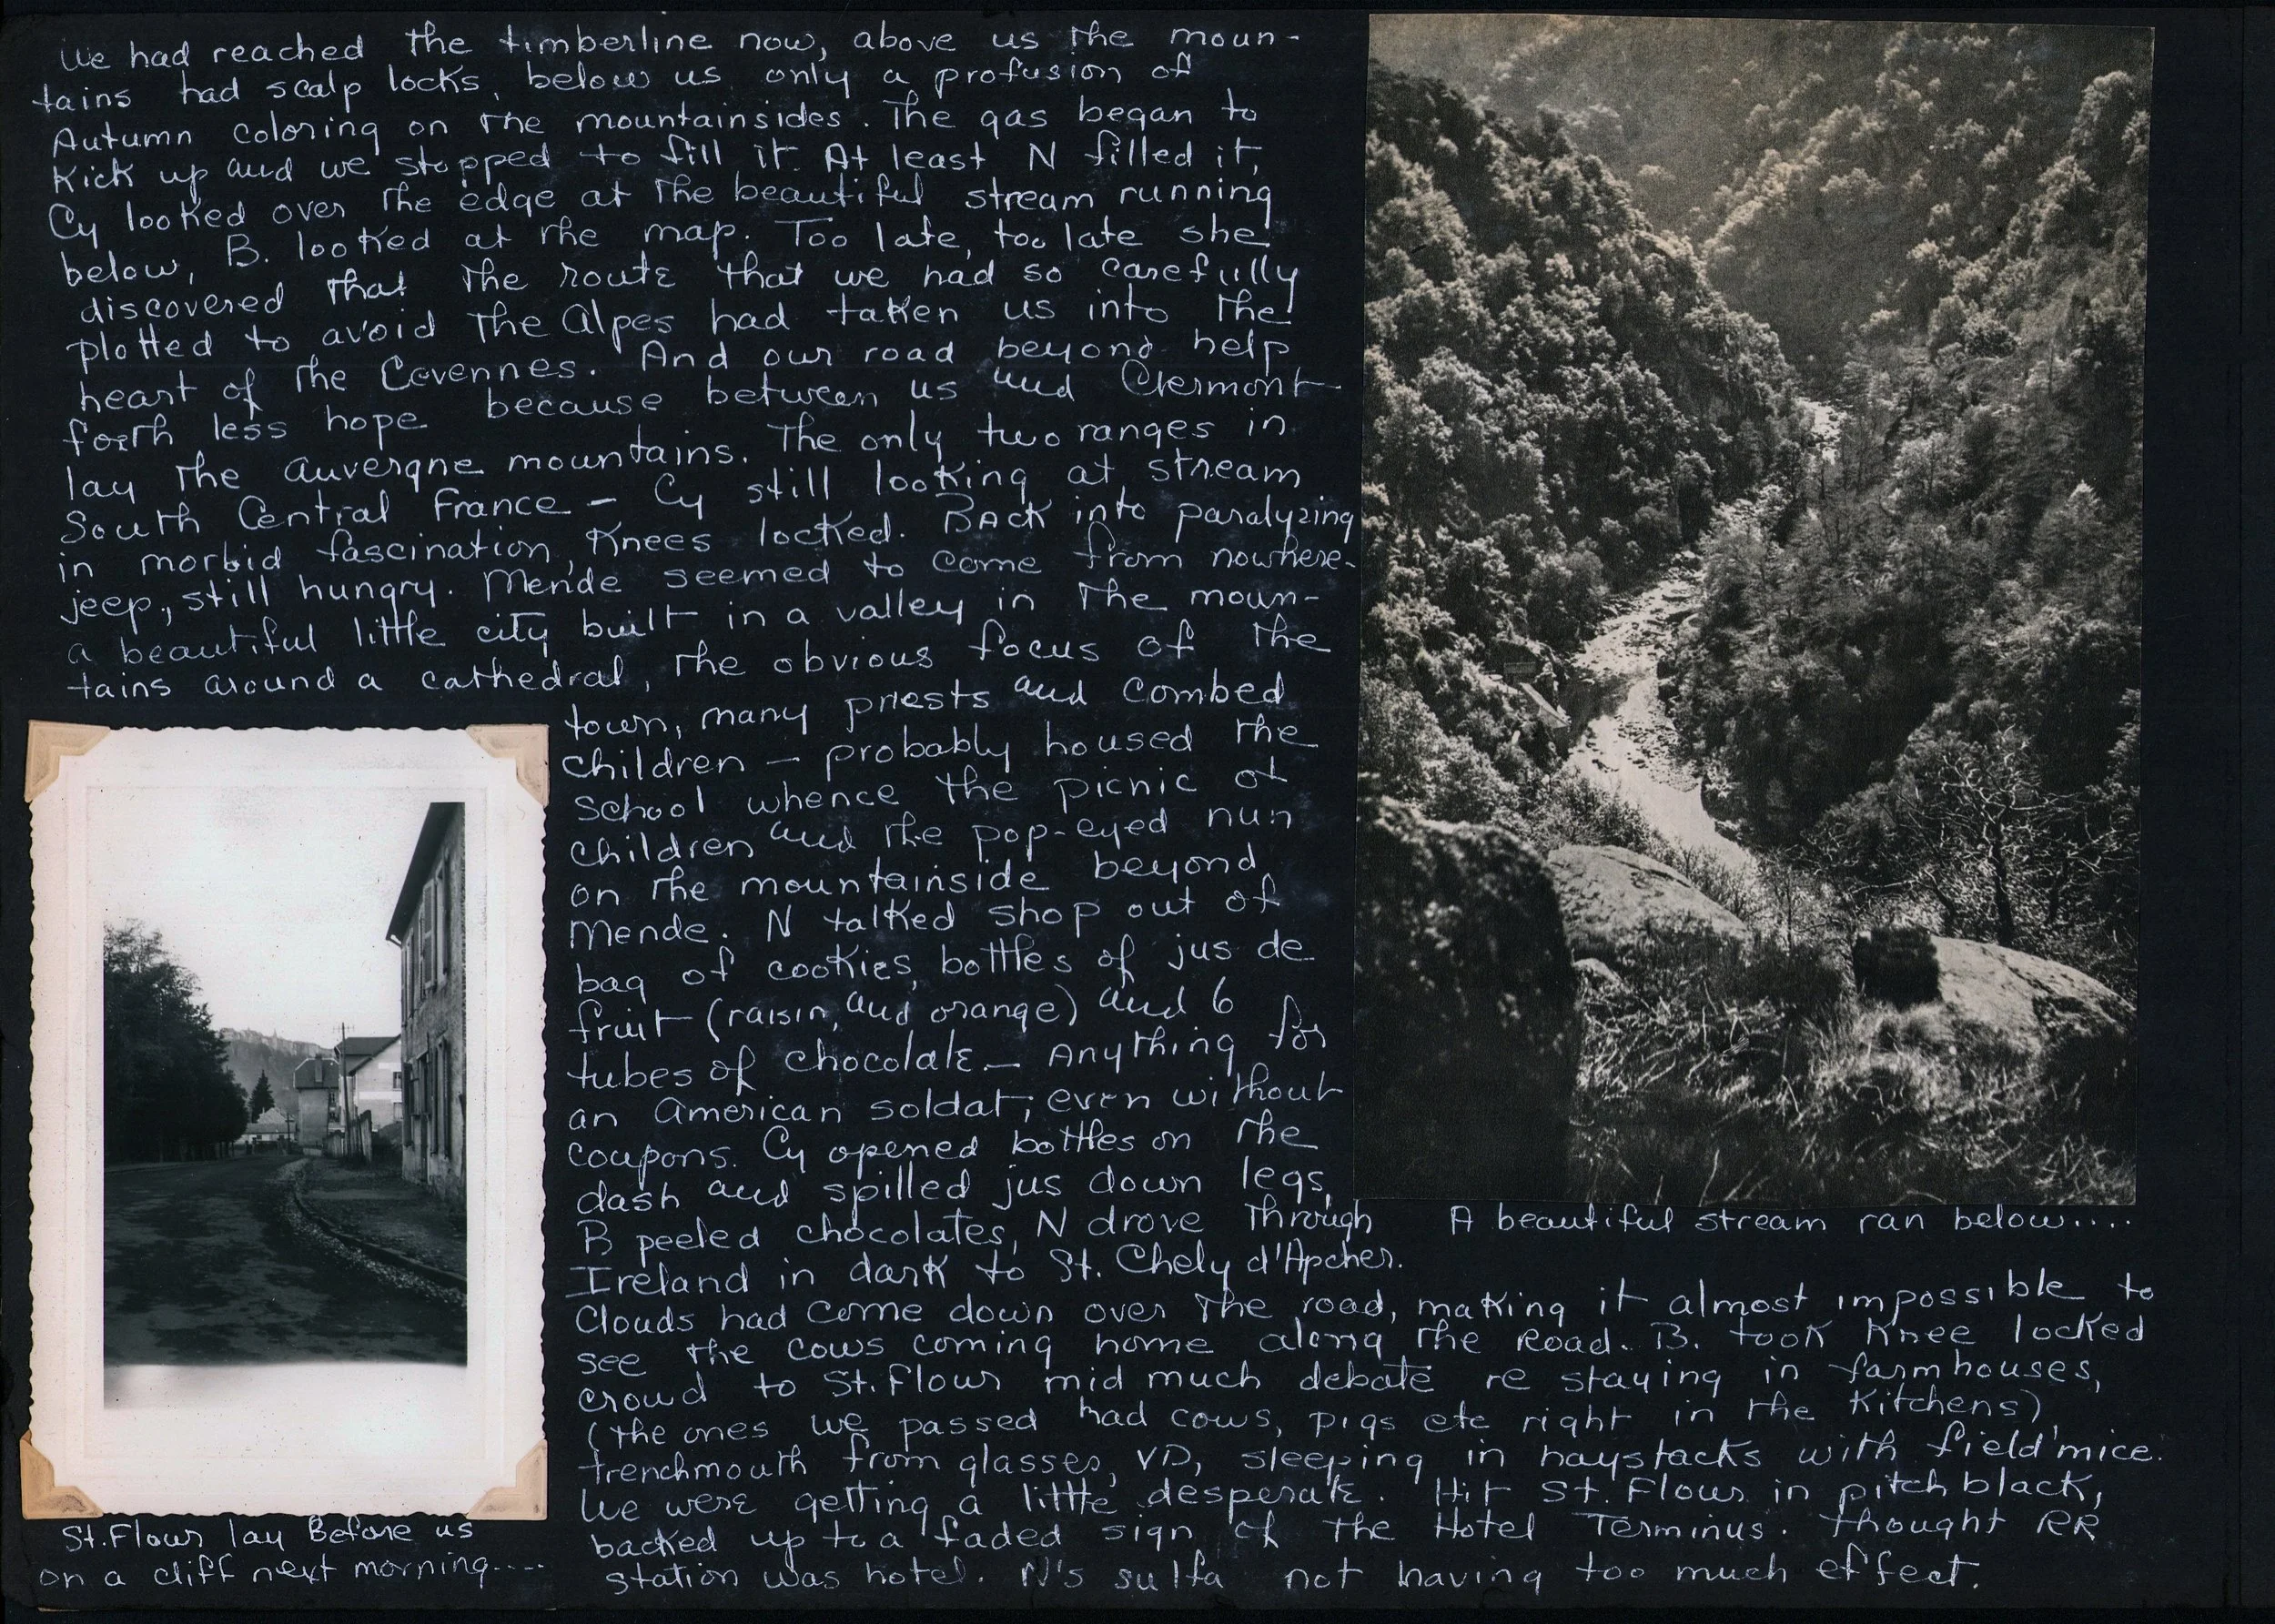 We had reached the timberline now, above us the moun-
tains had scalp locks, below us only a profusion of
Autumn coloring on the mountainsides. The gas began to
Kick up and we stopped to fill it. At least N filled it,
Cy looked over the edge at the beautiful stream running
below, B. looked at the map. Too late, too late she
discovered that the route that we had so carefully
plotted to avoid the Alpes had taken us into the
heart of the Cevennes. And our road beyond help
forth less hope because between us and Clermont
lay the Auvergne mountains. The only two ranges in
South Central France - Cy still looking at stream
in morbid fascination, Knees locked. Back into paralyzing
jeep, still hungry. Mende seemed to come from nowhere-
a beautiful little city built in a valley in the moun-
tains around a cathedral, the obvious focus of the
town, many priests and combed
children - probably housed the
school whence the picnic of
children and the pop-eyed nun
on the mountainside beyond
Mende. N talked shop out of
bag of cookies, bottles of jus de
fruit (raisin, and orange) and 6
tubes of chocolate - Anything for
an American soldat, even without
coupons. Cy opened bottles on the
dash and spilled jus down legs,
B peeled chocolates, N drove through
Ireland in dark to St. Chely d'Apcher.
Clouds had come down over the road, making it almost impossible to
see the cows coming home along the Road. B. took Knee locked
crowd to St. Flour mid much debate re staying in farmhouses,
(the ones we passed had cows, pigs etc right in the Kitchens)
trenchmouth from glasses, VD, sleeping in haystacks with field mice.
We were getting a little desperate. Hit St. Flour in pitch black,
backed up to a faded sign of the Hotel Terminus. Thought RR
station was hotel. N's sulfa not having too much effect.
A beautiful stream ran below....
St. Flour lay Before us
on a cliff next morning....